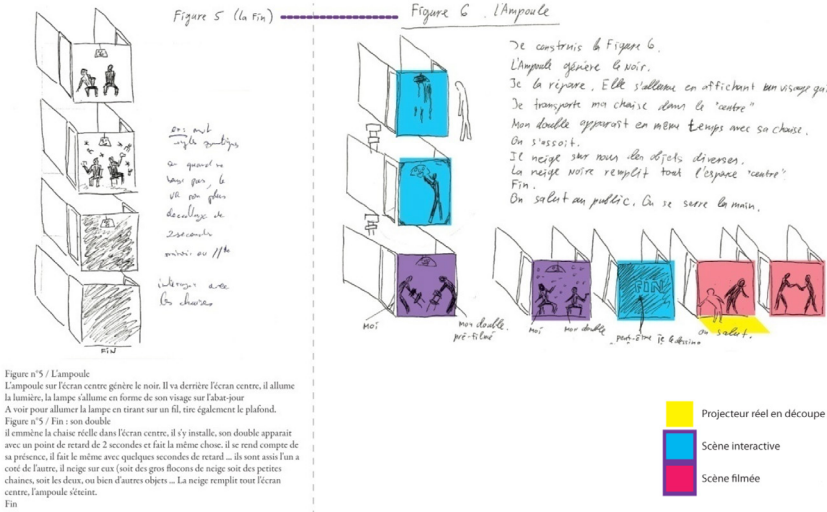 Figure 5 (la Fin)
Figure 6 . l'Ampoule
Je construis la Figure 6.
L'Ampoule génère le Noir.
Je la répare. Elle s'allume en affichant mon visage qui
Je transporte ma chaise dans le "centre"
Mon double apparait en même temps avec sa chaise.
On s'assoit.
Il neige sur nous des objets diverses.
La neige Noire remplit tout l'espace "centre"
Fin.
On salut au public. On se serre la main.
2 secondes
miroir ou
avec
les chaises
FIN
moi
mon double.
pré-filmé
moi
mon double
FIN
peut-être je le dessine
on salut.
Figure n°5 / L'ampoule
L'ampoule sur l'écran centre génère le noir. Il va derrière l'écran centre, il allume
la lumière, la lampe s'allume en forme de son visage sur l'abat-jour
A voir pour allumer la lampe en tirant sur un fil, tire également le plafond.
Figure n°5 / Fin : son double
il emmène la chaise réelle dans l'écran centre, il s'y installe, son double apparait
avec un point de retard de 2 secondes et fait la même chose. il se rend compte de
sa présence, il fait le même avec quelques secondes de retard ... ils sont assis l'un a
coté de l'autre, il neige sur eux (soit des gros flocons de neige soit des petites
chaines, soit les deux, ou bien d'autres objets ... La neige remplit tout l'écran
centre, l'ampoule s'éteint.
Fin
Projecteur réel en découpe
Scène interactive
Scène filmée